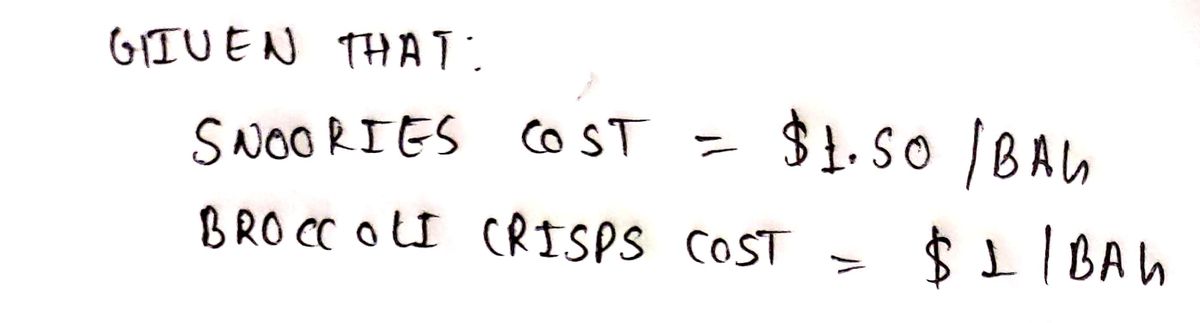 GIVEN THAT:
SNOORIES COST = $1.50 /BAG
BROCCOLI CRISPS COST = $1 /BAG